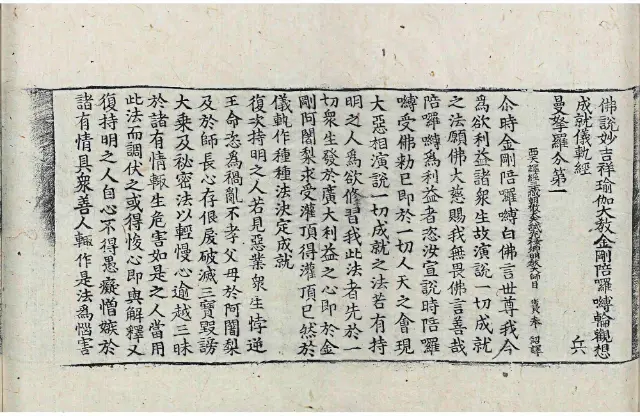 佛說妙吉祥瑜伽大教金剛陪囉嚩輪觀想
成就儀軌經 兵
曼拏羅分第一
尒時金剛陪囉嚩白佛言世尊我今
爲欲利益諸衆生故演說一切成就
之法願佛大慈賜我無畏佛言善哉
陪囉嚩爲利益者恣汝宣說時陪囉
嚩受佛勑已即於一切人天之會現
大惡相演說一切成就之法若有持
明之人爲欲修習我此法者先於一
切衆生發於廣大利益之心即於金
剛阿闍梨求受灌頂得灌頂已然於
儀軌作種種法決定成就
復次持明之人若見惡業衆生悖逆
王命恣爲禍亂不孝父母於阿闍梨
及於師長心存很戾破滅三寶毀謗
大乘及祕密法以輕慢心逾越三昧
於諸有情輙生危害如是之人當用
此法而調伏之或得悛心即與解釋又
復持明之人自心不得愚癡憎嫉於
諸有情具衆善人輙作是法爲惱害